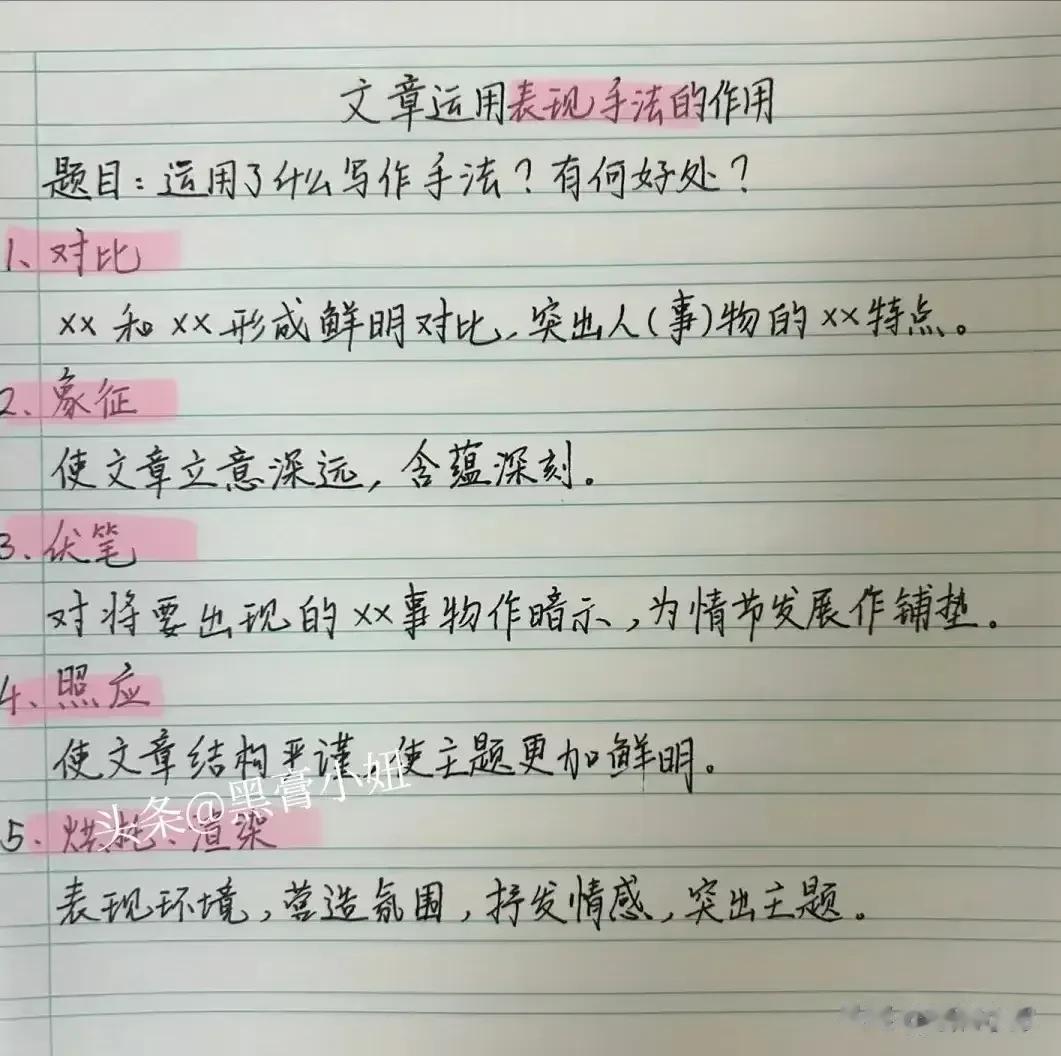 文章运用表现手法的作用
题目:运用了什么写作手法?有何好处?
1、对比
xx和xx形成鲜明对比,突出人(事)物的xx特点。
2、象征
使文章立意深远,含蕴深刻。
3、伏笔
对将要出现的xx事物作暗示,为情节发展作铺垫。
4、照应
使文章结构严谨,使主题更加鲜明。
头条@黑膏小妞
5、烘托、渲染
表现环境,营造氛围,抒发情感,突出主题。